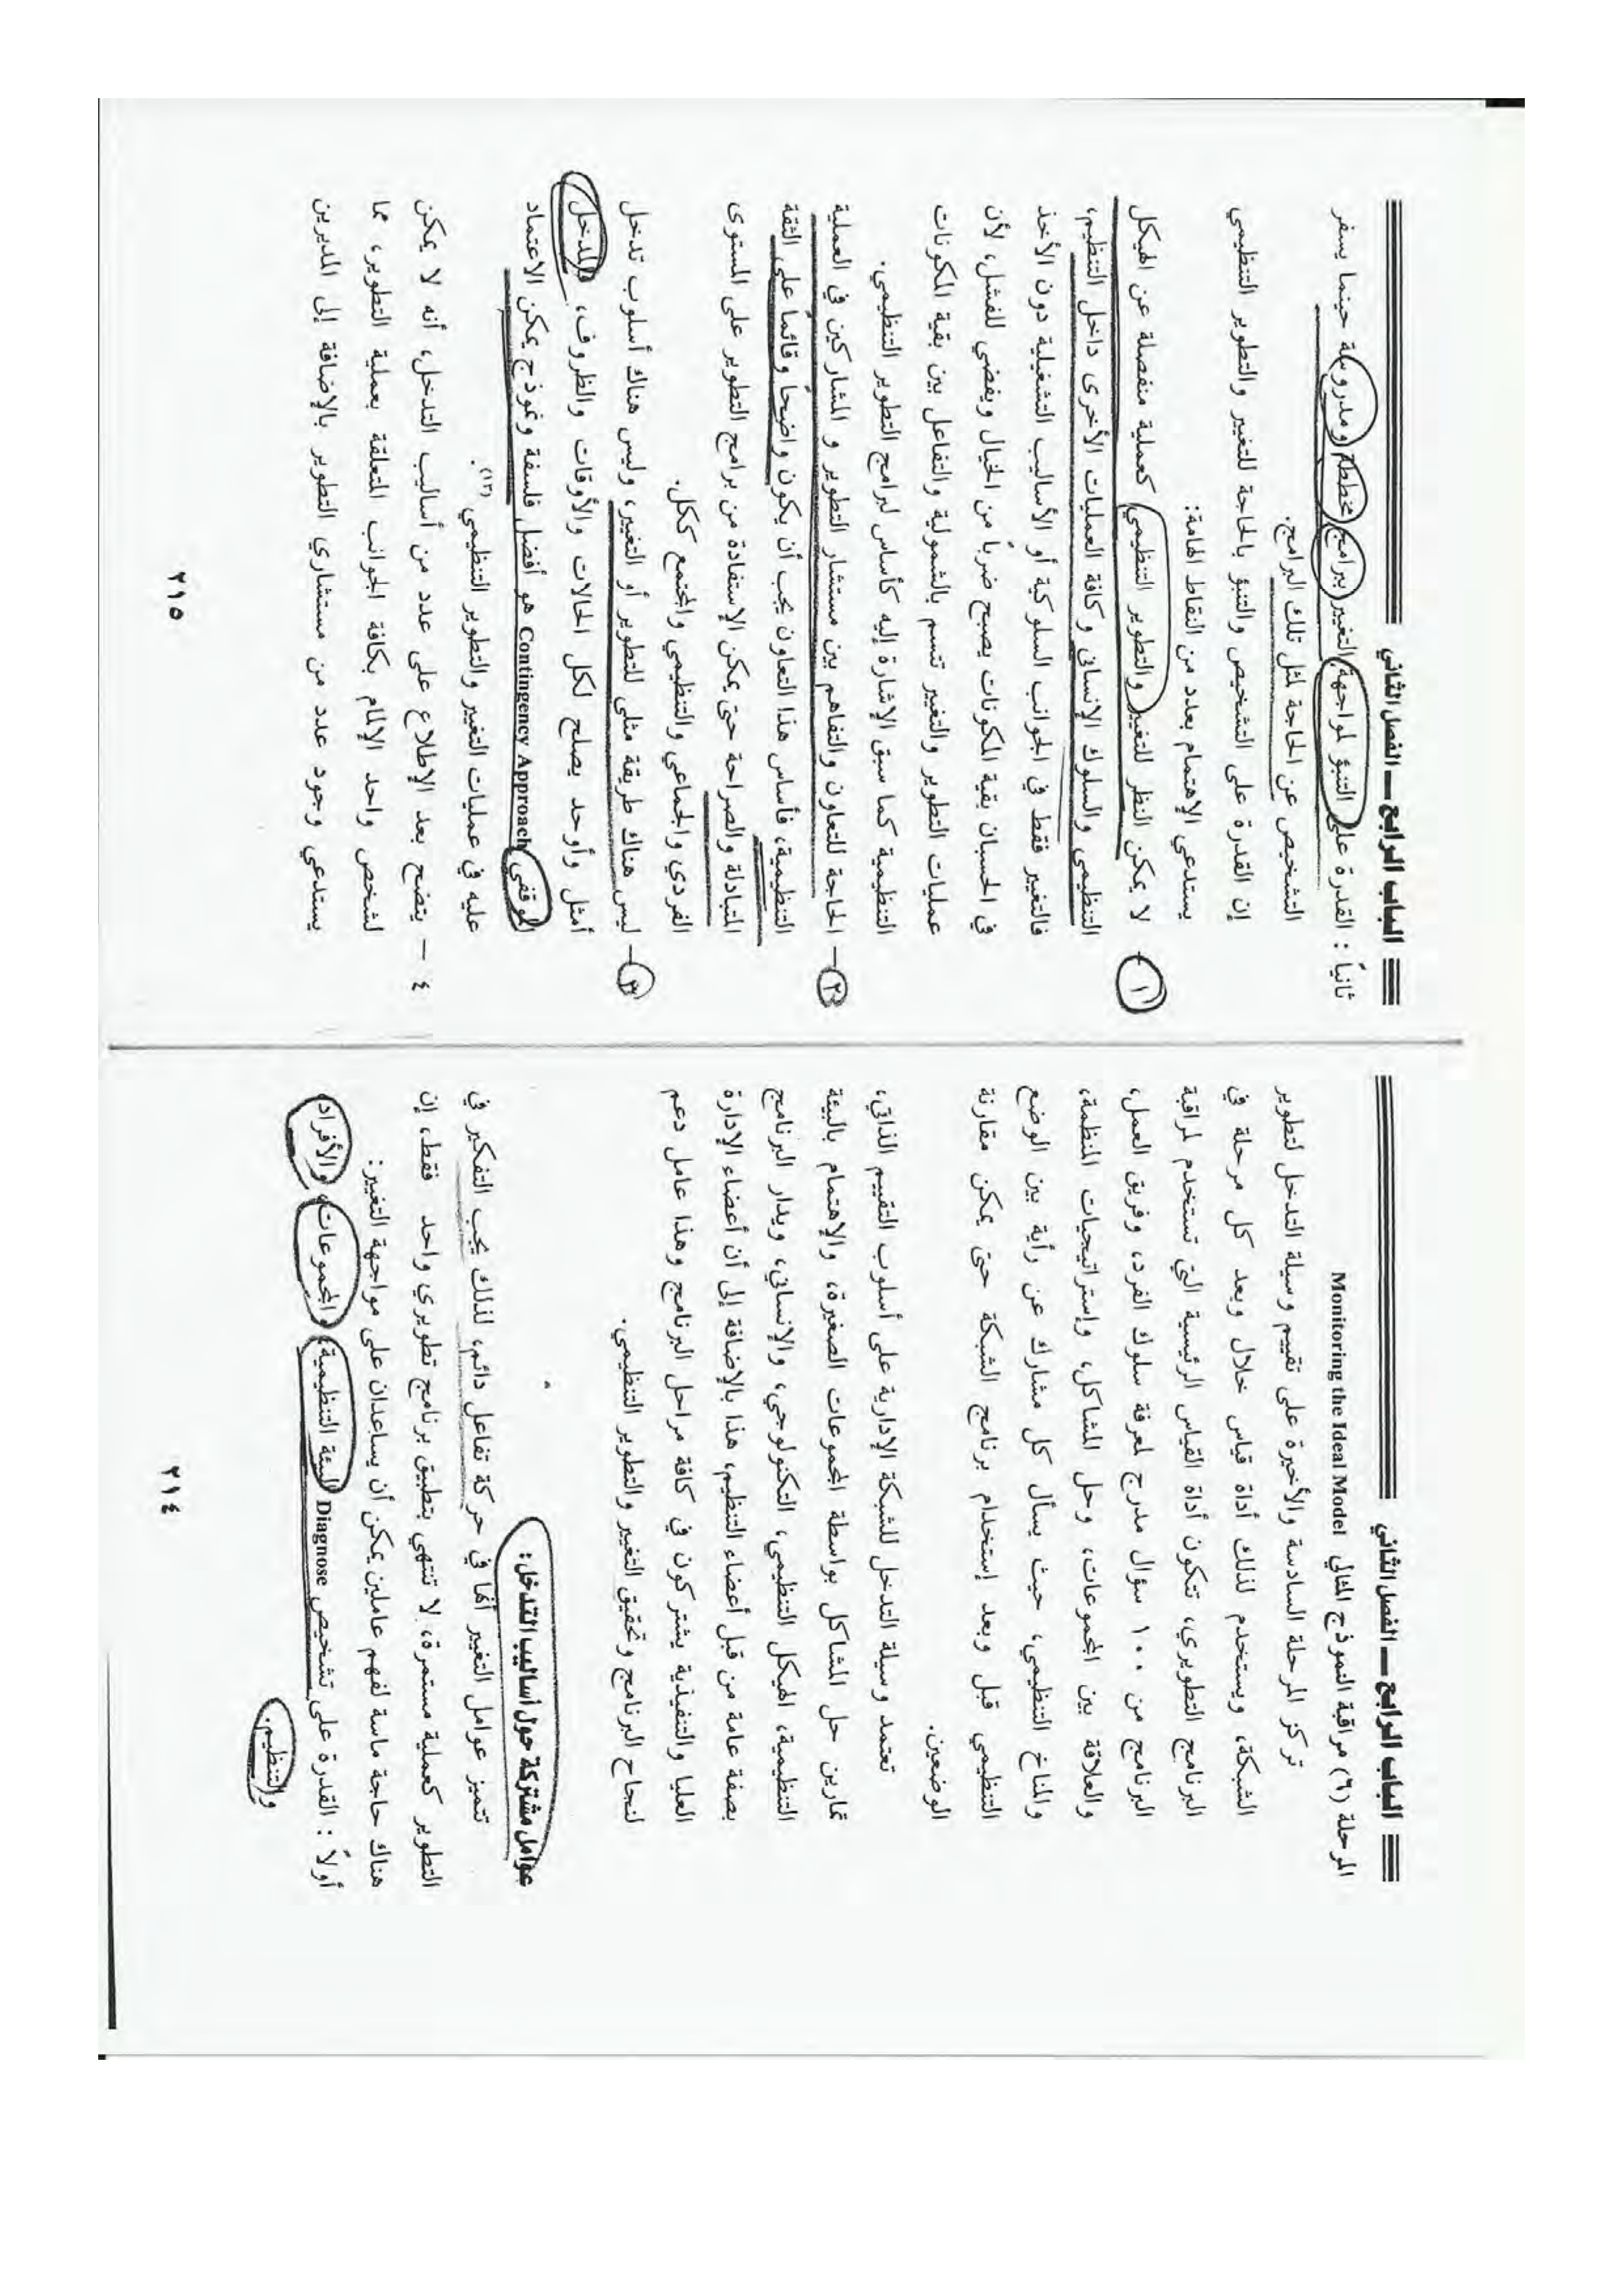 الباب الرابع ـــ الفصل الثاني
المرحلة (٦) مراقبة النموذج المثالي Monitoring the Ideal Model
تركز المرحلة السادسة والأخيرة على تقييم وسيلة التدخل لتطوير
الشبكة، ويستخدم لذلك أداة قياس خلال وبعد كل مرحلة في
البرنامج التطويري، تتكون أداة القياس الرئيسية التي تستخدم لمراقبة
البرنامج من ١٠٠ سؤال مدرج لمعرفة سلوك الفرد، وفريق العمل،
والعلاقة بين المجموعات، وحل المشاكل، وإستراتيجيات المنظمة،
والمناخ التنظيمي، حيث يسأل كل مشارك عن رأية بين الوضع
التنظيمي قبل وبعد إستخدام برنامج الشبكة حتى يمكن مقارنة
الوضعين.
تعتمد وسيلة التدخل للشبكة الإدارية على أسلوب التقييم الذاتي،
تمارين حل المشاكل بواسطة المجموعات الصغيرة، والإهتمام بالبيئة
التنظيمية، الهيكل التنظيمي، التكنولوجي، والإنساني، ويدار البرنامج
بصفة عامة من قبل أعضاء التنظيم، هذا بالإضافة إلى أن أعضاء الإدارة
العليا والتنفيذية يشتركون في كافة مراحل البرنامج وهذا عامل دعم
لنجاح البرنامج وتحقيق التغيير والتطوير التنظيمي.
عوامل مشتركة حول أساليب التدخل:
تتميز عوامل التغيير أنها في حركة تفاعل دائم، لذلك يجب التفكير في
التطوير كعملية مستمرة، لا تنتهي بتطبيق برنامج تطويري واحد فقط، إن
هناك حاجة ماسة لفهم عاملين يمكن أن يساعدان على مواجهة التغيير:
أولاً : القدرة على تشخيص Diagnose البيئة التنظيمية، والمجموعات، والأفراد
والتنظيم.
٢١٤
الباب الرابع ـــ الفصل الثاني
ثانياً : القدرة على التنبؤ لمواجهة التغيير ببرامج مخططة ومدروسة حينما يسفر
التشخيص عن الحاجة لمثل تلك البرامج.
إن القدرة على التشخيص والتنبؤ بالحاجة للتغيير والتطوير التنظيمي
يستدعي الإهتمام بعدد من النقاط الهامة:
١ - لا يمكن النظر للتغيير والتطوير التنظيمي كعملية منفصلة عن الهيكل
التنظيمي والسلوك الإنساني وكافة العمليات الأخرى داخل التنظيم،
فالتغيير فقط في الجوانب السلوكية أو الأساليب التشغيلية دون الأخذ
في الحسبان بقية المكونات يصبح ضرباً من الخيال ويفضي للفشل، لأن
عمليات التطوير والتغيير تتسم بالشمولية والتفاعل بين بقية المكونات
التنظيمية كما سبق الإشارة إليه كأساس لبرامج التطوير التنظيمي.
٢ - الحاجة للتعاون والتفاهم بين مستشار التطوير و المشاركين في العملية
التنظيمية، فأساس هذا التعاون يجب أن يكون واضحاً وقائماً على الثقة
المتبادلة والصراحة حتى يمكن الإستفادة من برامج التطوير على المستوى
الفردي والجماعي والتنظيمي والمجتمع ككل.
٣ - ليس هناك طريقة مثلى للتطوير أو التغيير، وليس هناك أسلوب تدخل
أمثل وأوحد يصلح لكل الحالات والأوقات والظروف، فالمدخل
الموقفي Contingency Approach هو أفضل فلسفة ونموذج يمكن الاعتماد
عليه في عمليات التغيير والتطوير التنظيمي (١٣).
٤ - يتضح بعد الإطلاع على عدد من أساليب التدخل، أنه لا يمكن
لشخص واحد الإلمام بكافة الجوانب المتعلقة بعملية التطوير، مما
يستدعي وجود عدد من مستشاري التطوير بالإضافة إلى المديرين
٢١٥